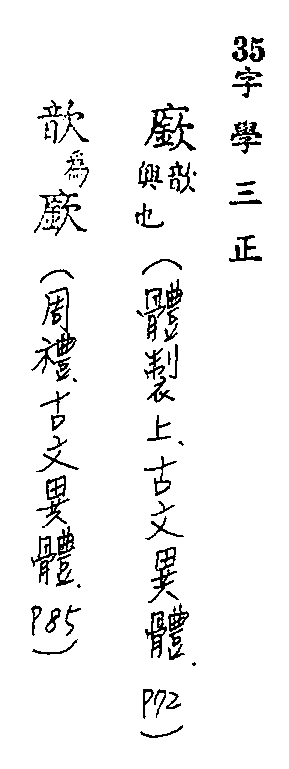 35字學三正
廞歆興也（體製上、古文異體．P72）
歆為廞（周禮、古文異體．P85）